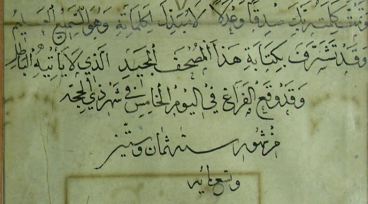 وتمت كلمت ربك صدقا وعدلا لا مبدل لكلماته وهو السميع العليم
وقد تشرف بكتابة هذا المصحف المجيد الذي لا يأتيه الباطل
وقد وقع الفراغ في اليوم الخامس في شهر ذي الحجة
من شهور سنة ثمان وستين
وتسعمائة